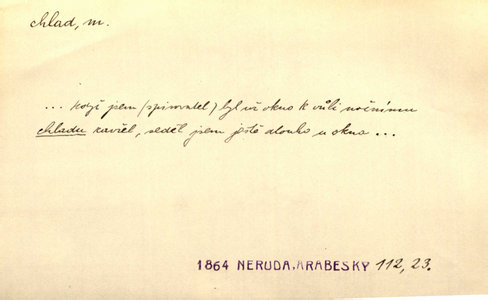 chlad, m.
... když jsem (spisovatel) byl už okno k vůli nočnímu
chladu zavřel, seděl jsem ještě dlouho u okna ...
1864 NERUDA, ARABESKY 112, 23.